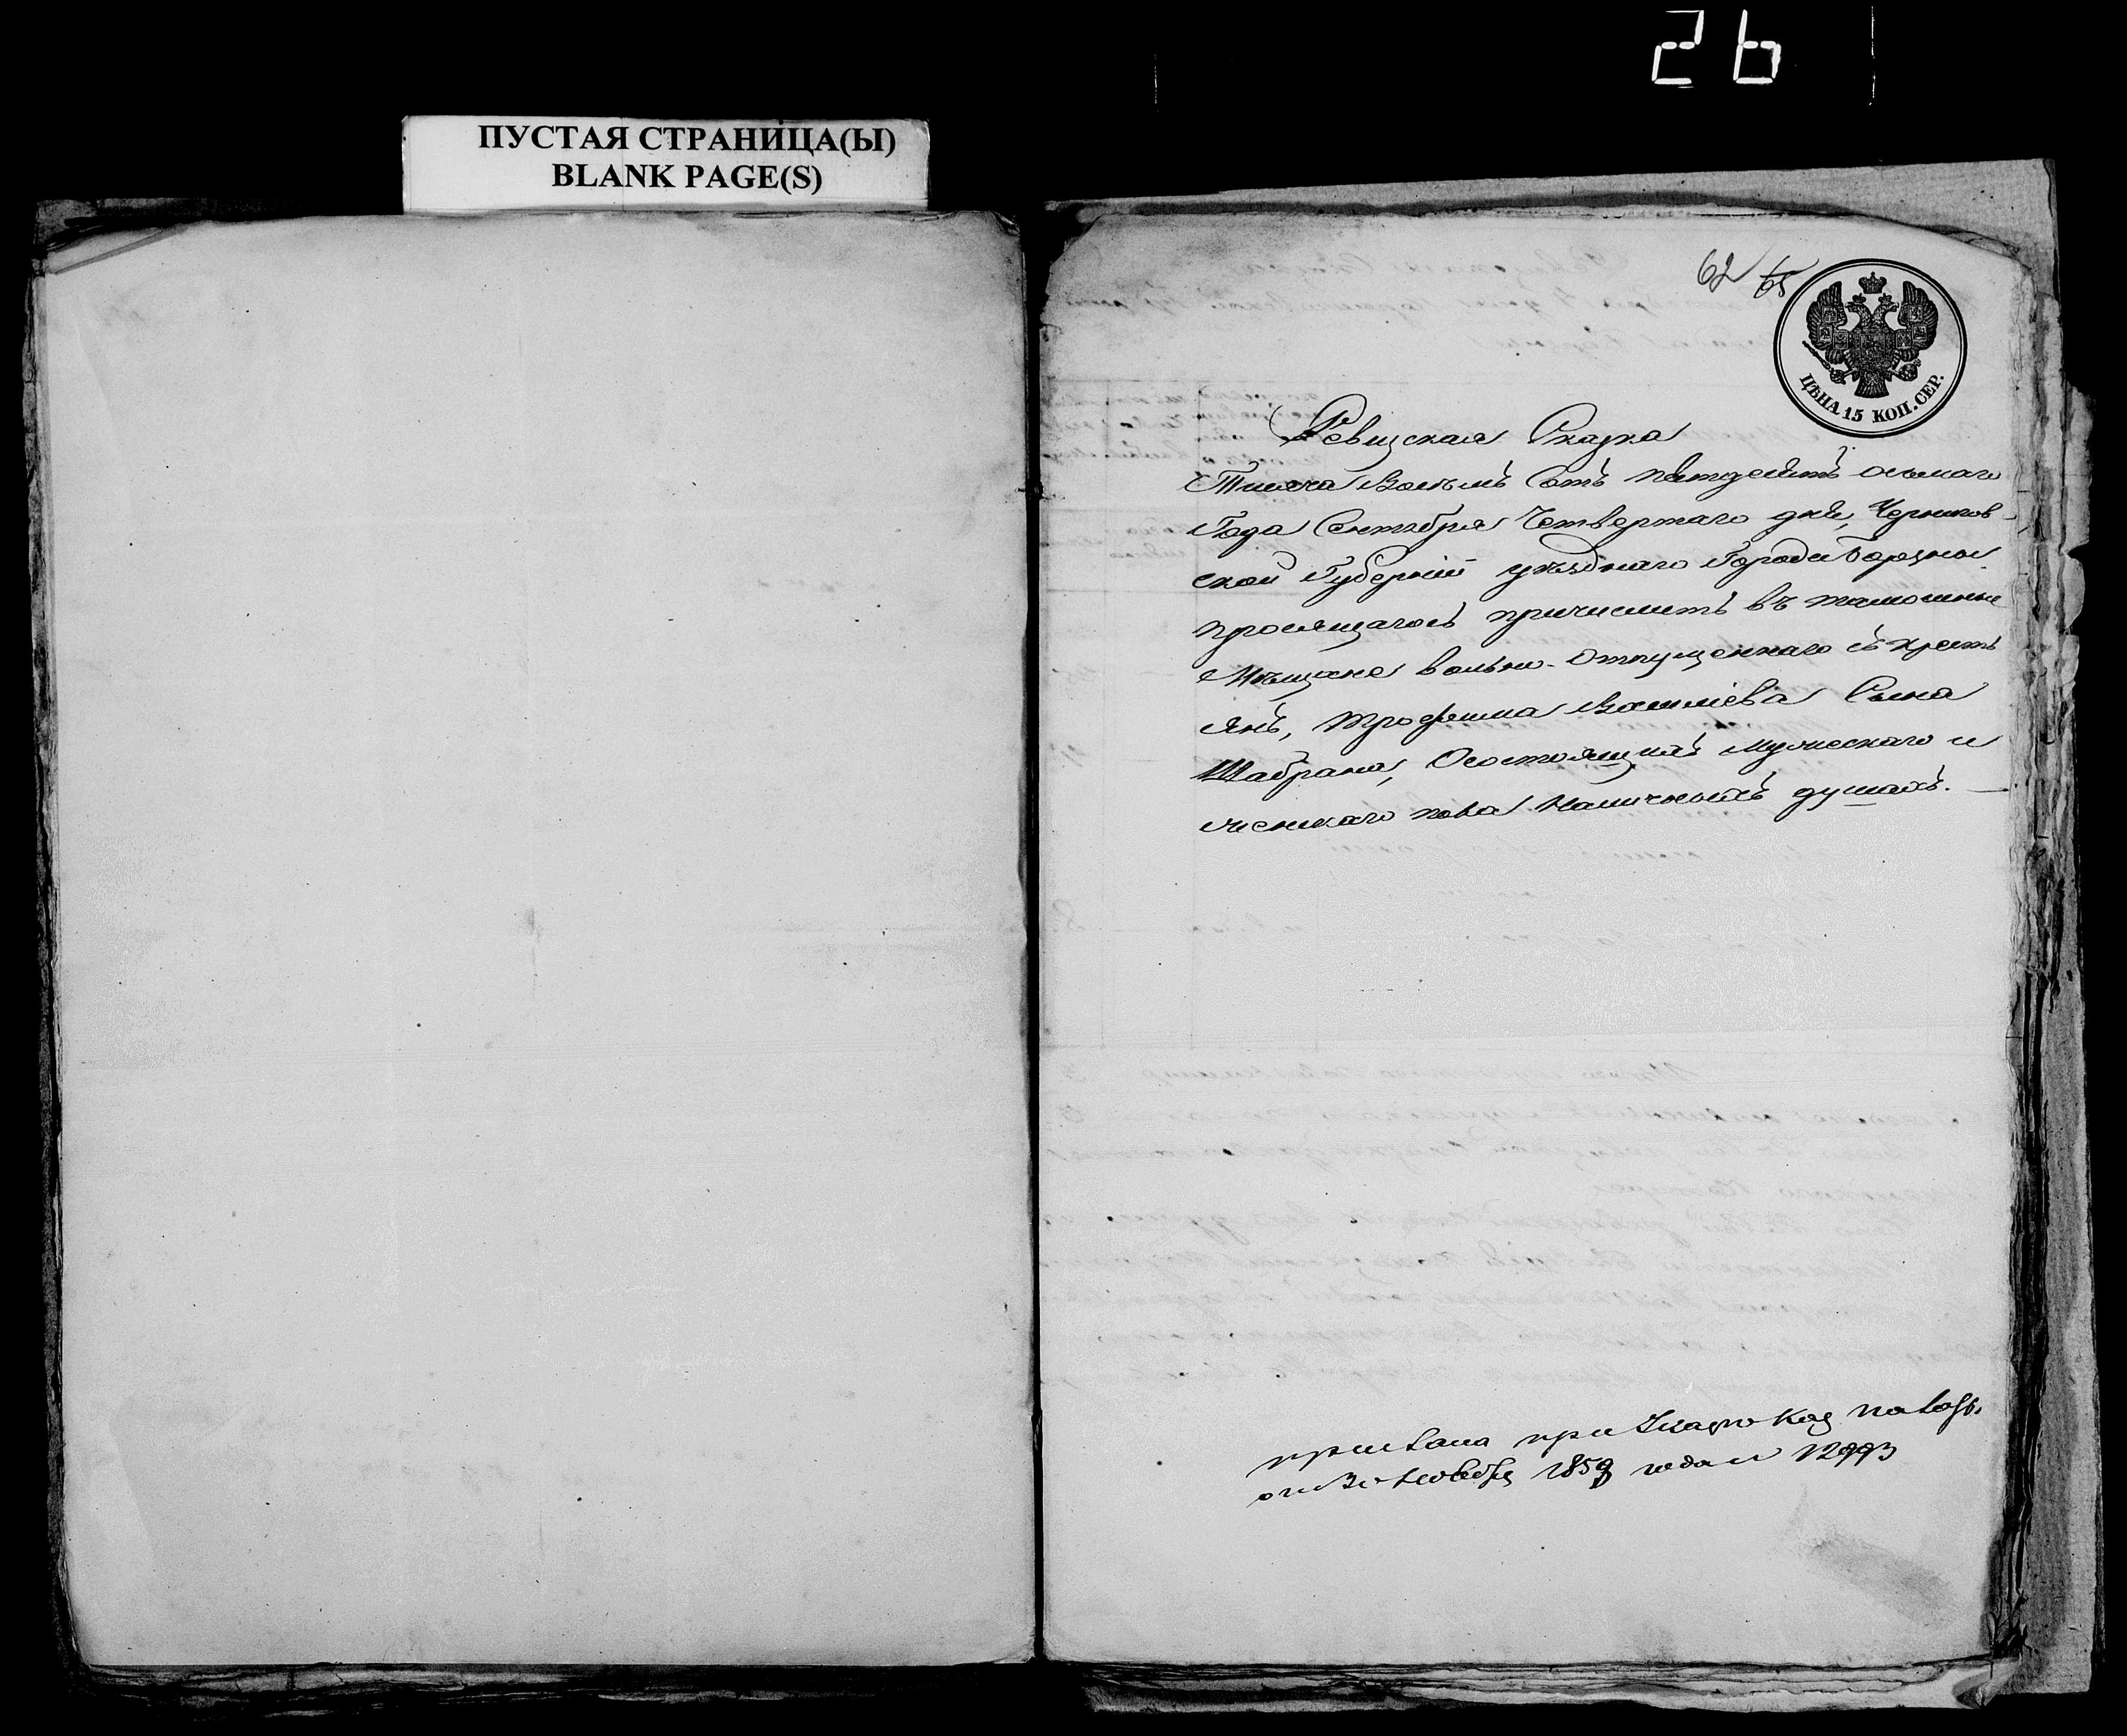 26
ПУСТАЯ СТРАНИЦА(Ы)
BLANK PAGE(S)
62 65
ЦѢНА 15 КОП. СЕР.
Ревизская Сказка
Тысяча восемь Сотъ пятдесятъ осьмаго
Года Сентября Четвертаго дня, Чернигов-
ской Губерніи уѣзднаго Города Борзны
просящагось причислить въ тамошные
Мѣщане вольно-отпущеннаго съ кресть
янъ, Трофима Васильева Сына
Шабрана, Осостоящихъ мужескаго и
женскаго пола наличныхъ душахъ.
прислана при Указѣ Каз
ноября 185 года 12993